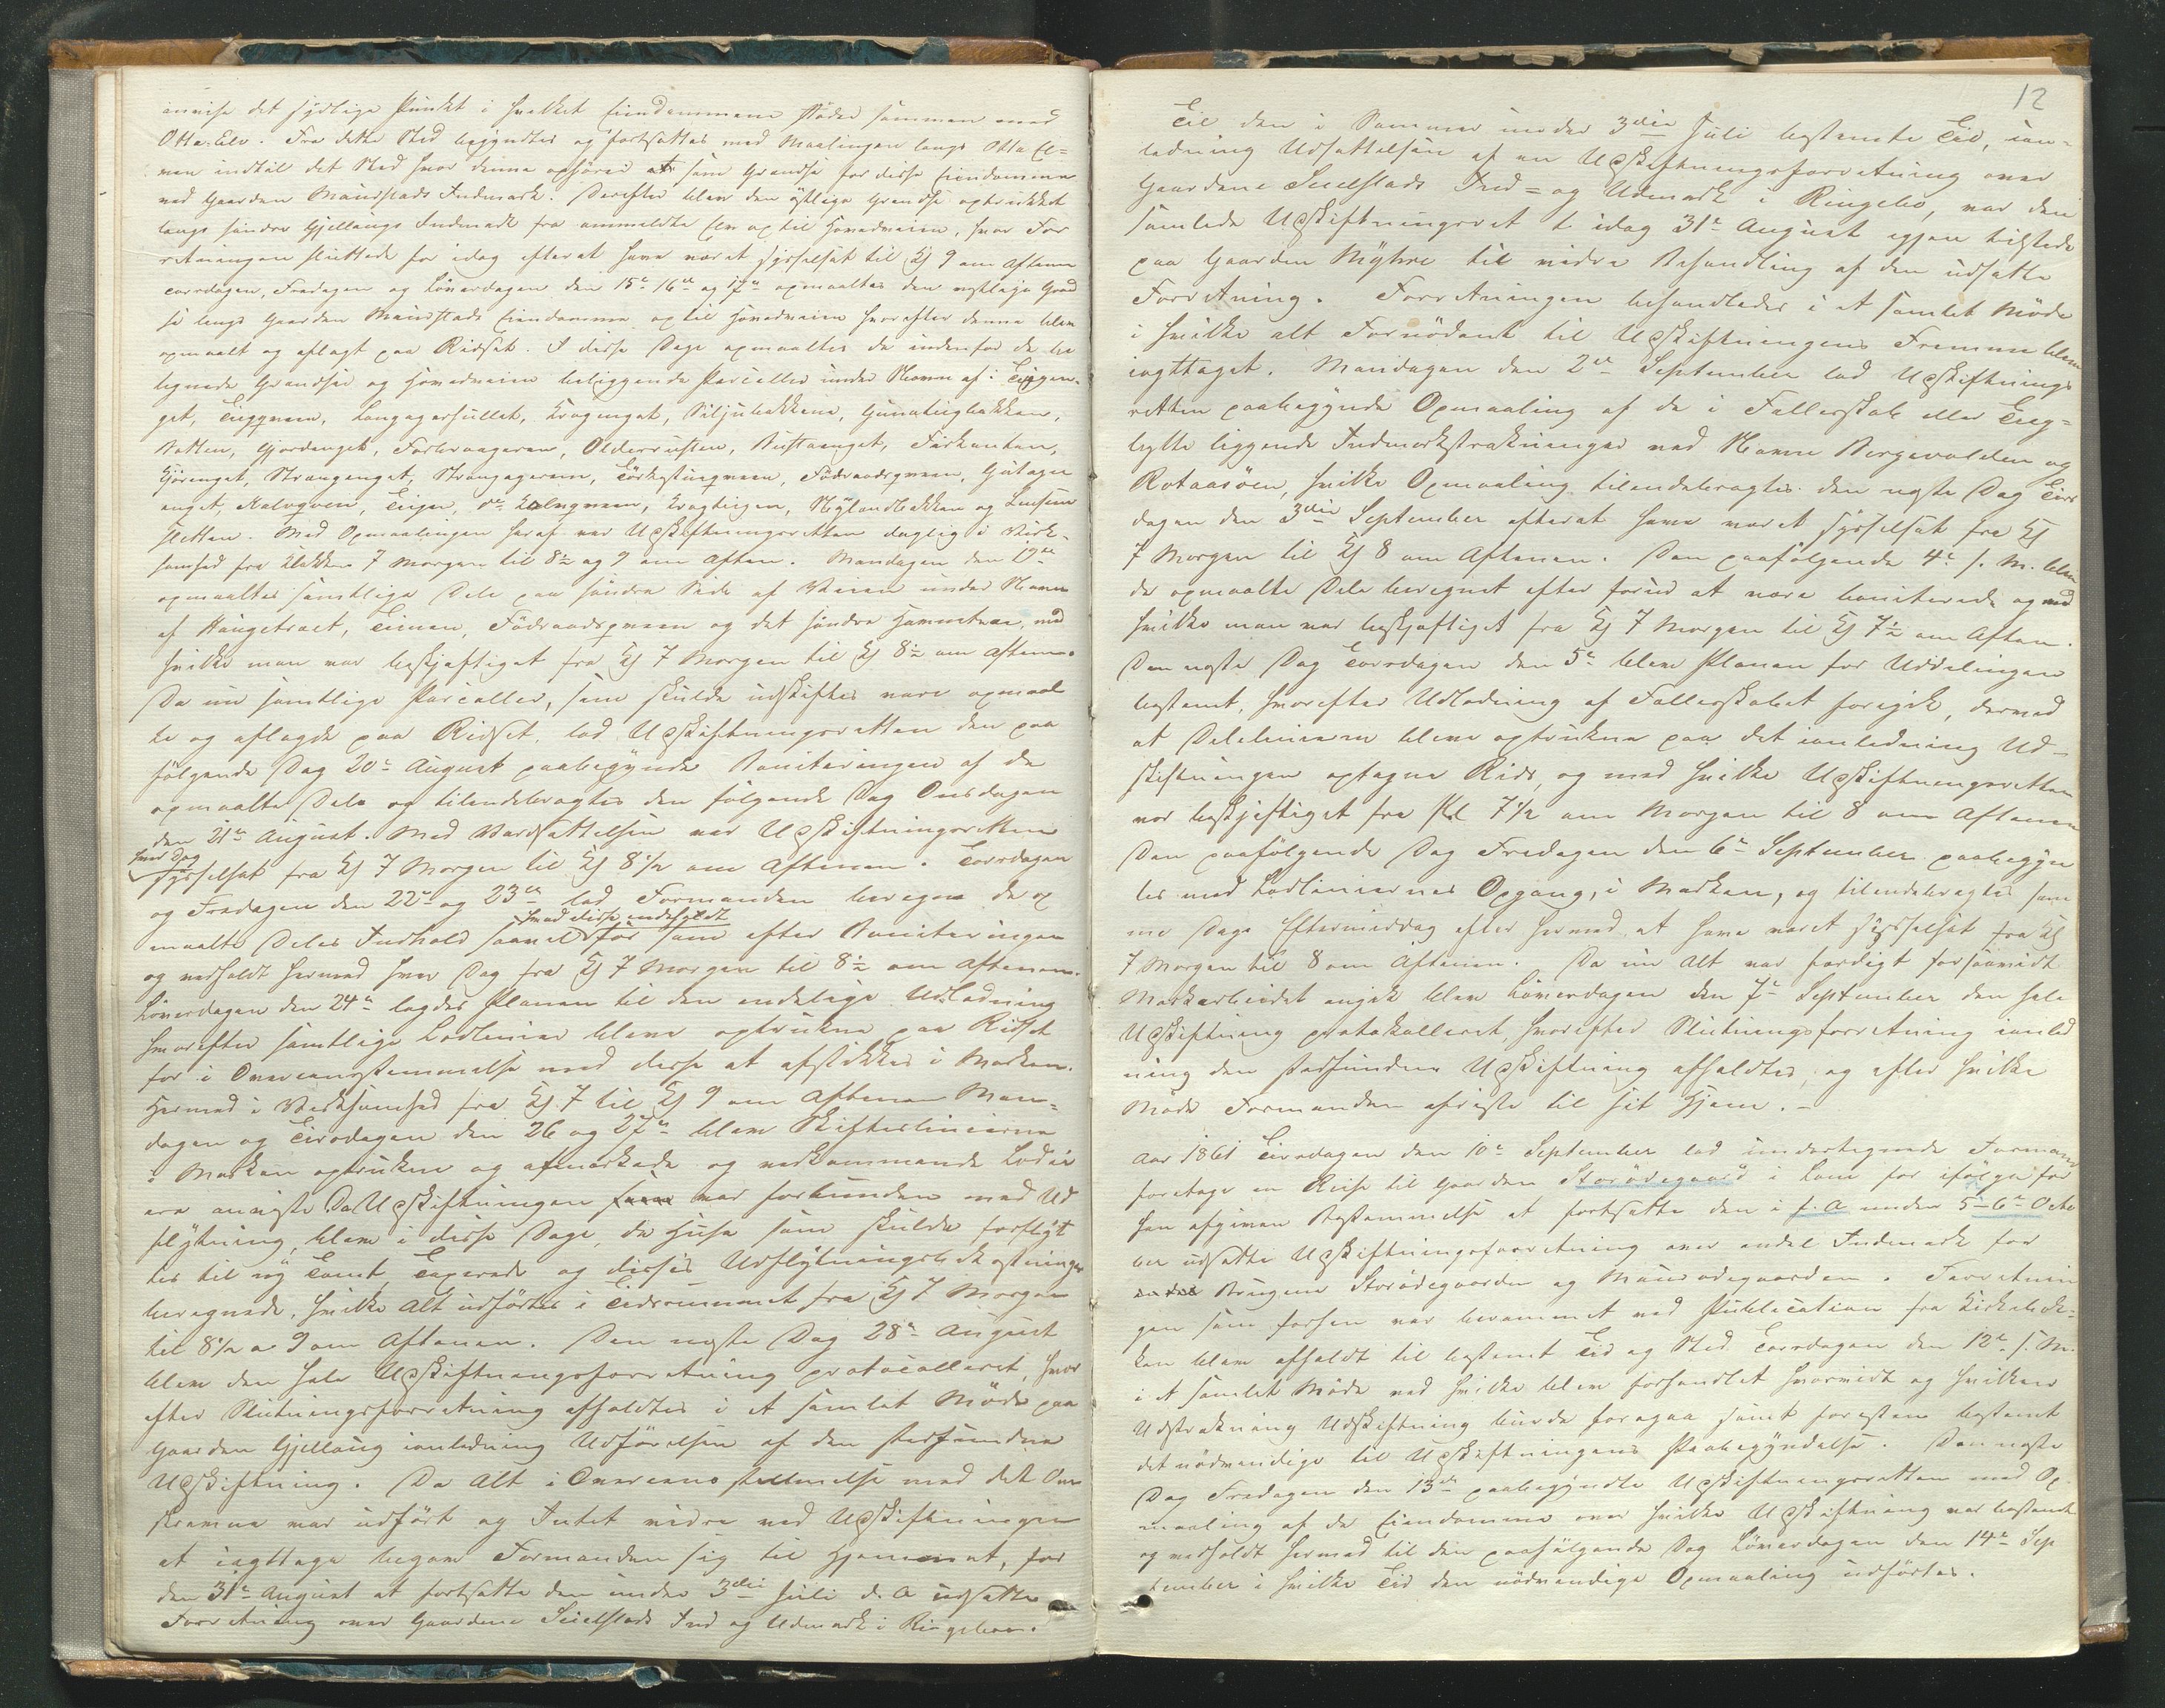 anvise det sydlige Punkt i hvilket Eiendommene støder sammen med
Otta-Elv. Fra dette Sted begyndtes og fortsattes med Maalingen langs Otta El=
ven indtil det Sted hvor denne ophører at som Grændse for disse Eiendomme
ved Gaarden Maurstads Indmark. Derefter blev den østlige Grændse optrukket
langs søndre Gjellaugs Indmark fra ommeldte Elv op til Hovedveien, hvor For
retningen sluttede for idag efterat have været sysselsat til Kl 9 om Aftenen
Torsdagen, Fredagen og Løverdagen den 15de 16de og 17de opmaaltes den vestlige Grænd
se langs Gaarden Maurstads Eiendomme op til Hovedveien hvorefter denne blev
opmaalt og aflagt paa Ridset. I disse Dage opmaaltes de indenfor de be
tegnede Grændser og Hovedveien beliggende Parceller under Navn af:
get, Langagerhullet, Krogenget, Siljubakkene,
Olderrusten, Firkanten,
Kjørenget, Strangenget, Strangageren, Födraadsqveen,
enget, Kalvqveen, Teigen, Krogteigen, Nylandbakken og
Sletten. Med Opmaalingen heraf var Udskiftningsretten daglig i Virk-
somhed fra Klokken 7 Morgen til 8½ og 9 om Aften. Mandagen den 19de
opmaaltes samtlige Dele paa søndre Side af Veien under Navn
af Haugetræet, Födraadsqveen og det søndre med
hvilke man var beskjæftiget fra Kl 7 Morgen til Kl 8½ om Aftenen.
Da nu samtlige Parceller, som skulde udskiftes vare opmaal
te og aflagde paa Ridset, lod Udskiftningsretten den paa
følgende Dag 20de August paabegynde Boniteringen af de
opmaalte Dele og tilendebragtes den følgende Dag Onsdagen
den 21de August. Med Værdsættelsen var Udskiftningsretten
hver Dag
sysselsat fra Kl 7 Morgen til Kl 8½ om Aftenen. Torsdagen
og Fredagen den 22de og 23de lod Formanden beregne de op
hvad disse indeholdt
maalte Deles Indhold saavel før som efter Boniteringen
og vedholdt hermed hver Dag fra Kl 7 Morgen til 8½ om Aftenen.
Løverdagen den 24de lagdes Planen til den endelige Udlodning
hvorefter samtlige Lodlinier bleve optrukne paa Ridset
for i Overeensstemmelse med disse at afstikkes i Marken.
Hermed i Virksomhed fra Kl 7 til Kl 9 om Aftenen Man=
dagen og Tirsdagen den 26 og 27de bleve Skiftelinierne
i Marken optrukne og afmærkede og vedkommende Lodei
ere anviste. Da Udskiftningen var forbunden med Ud
flytning, bleve i disse Dage, de Huse som skulde forflyt
tes til ny Tomt, Taxerede og disses Udflytningsbekostninger
beregnede, hvilke Alt udførtes i Tidsrummet fra Kl 7 Morgen
til 8½ a 9 om Aftenen. Den næste Dag 28de August
blev den hele Udskiftningsforretning protocolleret, hvor
efter Slutningsforretning afholdtes i et samlet Møde paa
Gaarden Gjellaug ianledning Udførelsen af den stedfundne
Udskiftning. Da Alt i Overeensstemmelse med det Ovn
skrevne var udført og Intet videre ved Udskiftningen
at iagttage begav Formanden sig til Hjemmet, for
den 31te August at fortsætte den under 3die Juli d. A udsatte
Forretning over Gaardene Seielstads Ind og Udmark i Ringeboe.
12
Til den i Sommer under 3die Juli bestemte Tid, ian=
ledning Udsættelsen af en Udskiftningsforretning over
Gaardene Seielstads Ind= og Udmark i Ringebo, var den
samlede Udskiftningsret idag 31te August igjen tilstede
paa Gaarden Myhre til videre Behandling af den udsatte
Forretning. Forretningen behandledes i et samlet Møde
i hvilke alt Fornødent til Udskiftningens Fremme blev
iagttaget. Mandagen den 2den September lod Udskiftnings
retten paabegynde Opmaaling af de i Fællesskab eller Teig=
bytte liggende Indmarksstrækninger ved Navn Bergevolden og
Rotaasöen, hvilke Opmaaling tilendebragtes den næste Dag Tirs
dagen den 3die September efterat have været sysselsat fra Kl
7 Morgen til Kl 8 om Aftenen. Den paafølgende 4de s. M. blev
de opmaalte Dele beregnet efter forud at være boniterede og med
hvilke man var beskjæftiget fra Kl 7 Morgen til Kl 7½ om Aften.
Den næste Dag Torsdagen den 5te blev Planen for Uddelingen
bestemt, hvorefter Udlodning af Fællesskabet foregik, dermed
at Delelinierne bleve optrukne paa det ianledning Ud=
skiftningen optagne Rids, og med hvilke Udskiftningsretten
var beskjæftiget fra Kl 7½ om Morgen til 8 om Aftenen
Den paafølgende Dag Fredagen den 6te September paabegyn
tes med Lodliniernes Opgang, i Marken, og tilendebragtes sam
me Dags Eftermiddag efter hermed at have været sysselsat fra Kl
7 Morgen til 8 om Aftenen. Da nu Alt var færdigt forsaavidt
Markarbeidet angik blev Løverdagen den 7de September den hele
Udskiftning protokolleret, hvorefter Slutningsforretning ianled
ning den stedfundne Udskiftning afholdtes, og efter hvilke
Møde Formanden afreiste til sit Hjem.-
Aar 1861 Tirsdagen den 10de September lod undertegnede Formand
foretage en Reise til Gaarden Storødegaard i Lom for ifølge for
hen afgiven Bestemmelse at fortsætte den i f. A under 5-6te Octo
ber udsatte Udskiftningsforretning over endel Indmark for
Brugene Storødegaarden og Maurødegaarden. Forretnin
gen som forhen var berammet ved Publication fra Kirkebak=
ken blev afholdt til bestemt Tid og Sted Torsdagen den 12te s. M.
i et samlet Møde ved hvilke blev forhandlet hvorvidt og hvilken
Udstrækning Udskiftning burde foregaa samt foresten bestemt
det nødvendige til Udskiftningens Paabegyndelse. Den næste
Dag Fredagen den 13de paabegyndte Udskiftningsretten med Op-
maaling af de Eiendomme over hvilke Udskiftning var bestemt
og vedholdt hermed til den paafølgende Dag Løverdagen den 14de Sep
tember i hvilke Tid den nødvendige Opmaaling udførtes.